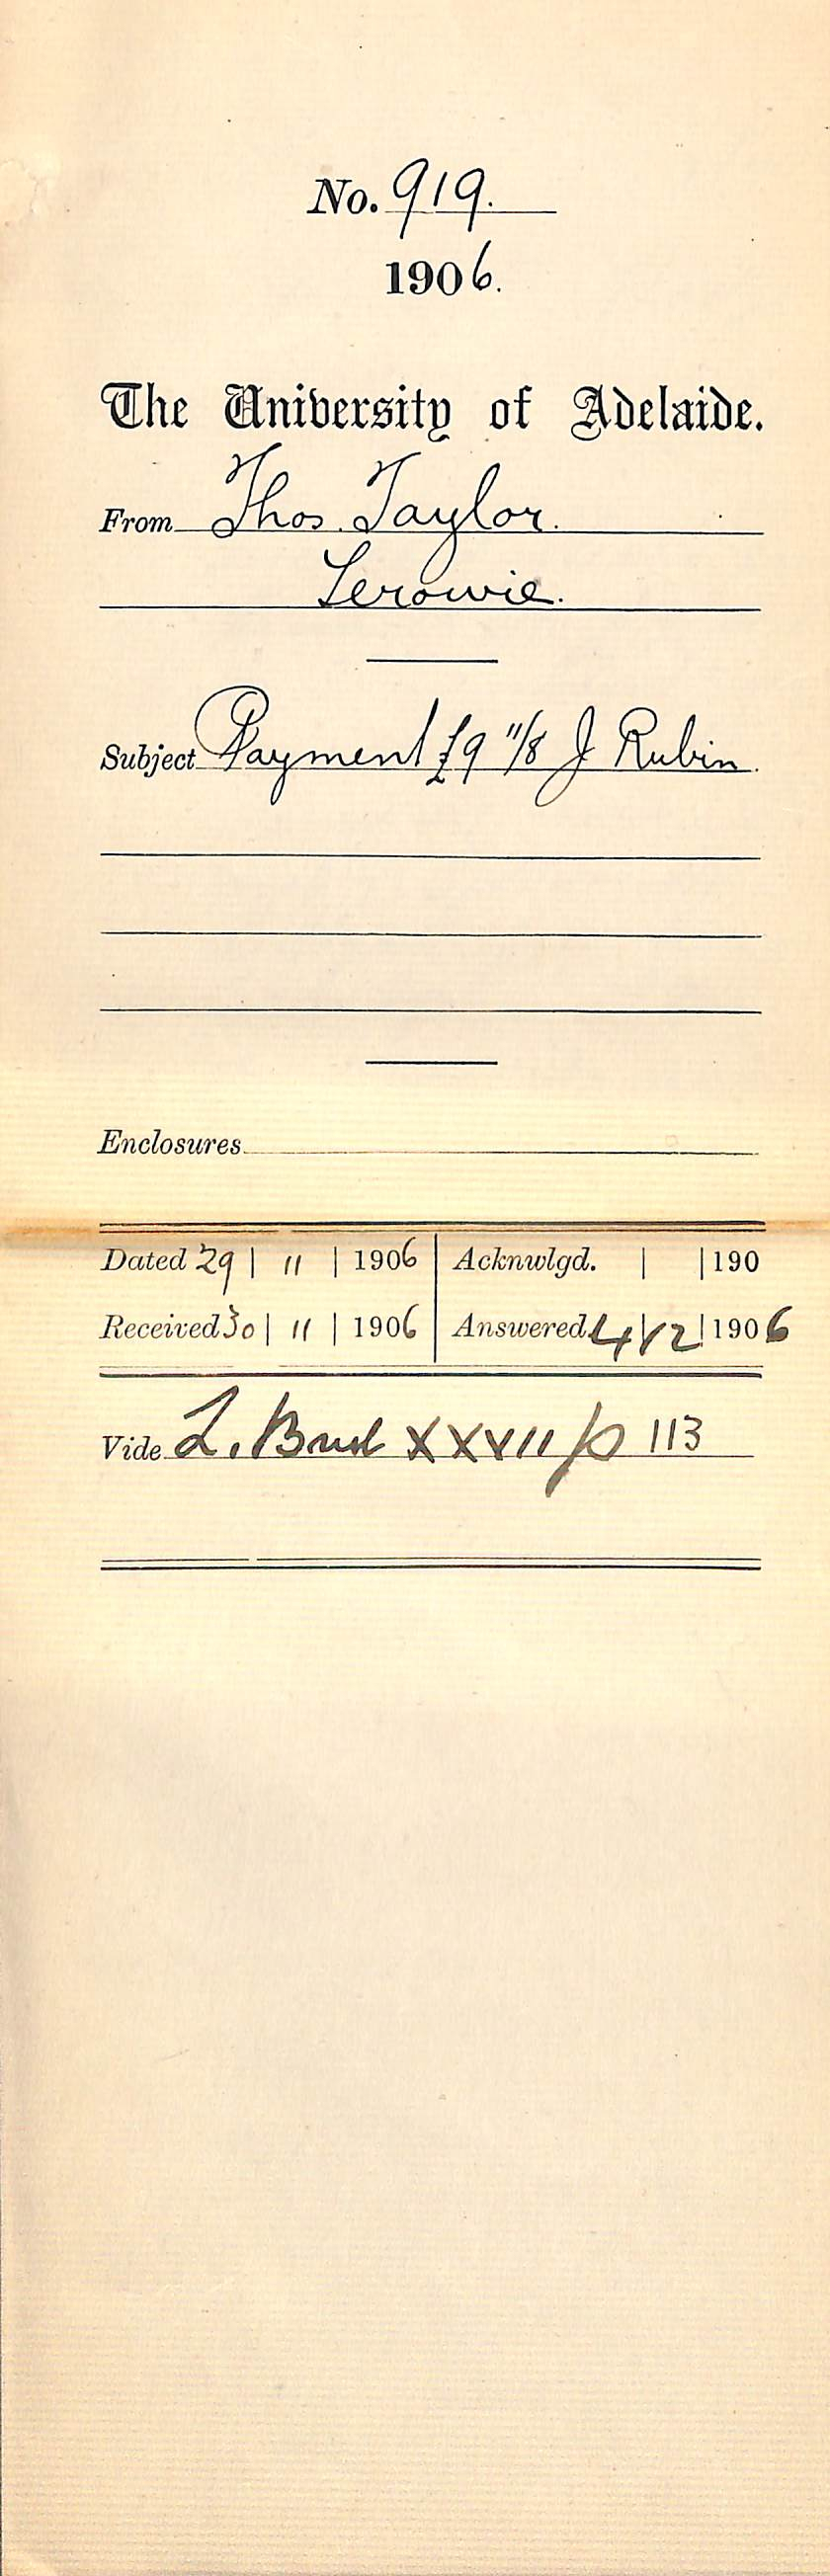 No. 919.
1906.
The University of Adelaide.
From Thos. Taylor.
Terowie.
Subject Payment £9 11/8 J Rubin.
Enclosures
Dated 29 | 11 | 1906 Acknwlgd. | | 190
Received 30 | 11 | 1906 Answered 4 | 12 | 1906
Vide L. XXVII p 113